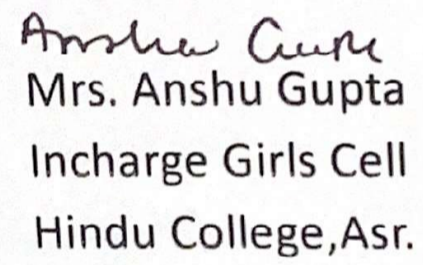 Anshu Gupta
Mrs. Anshu Gupta
Incharge Girls Cell
Hindu College,Asr.